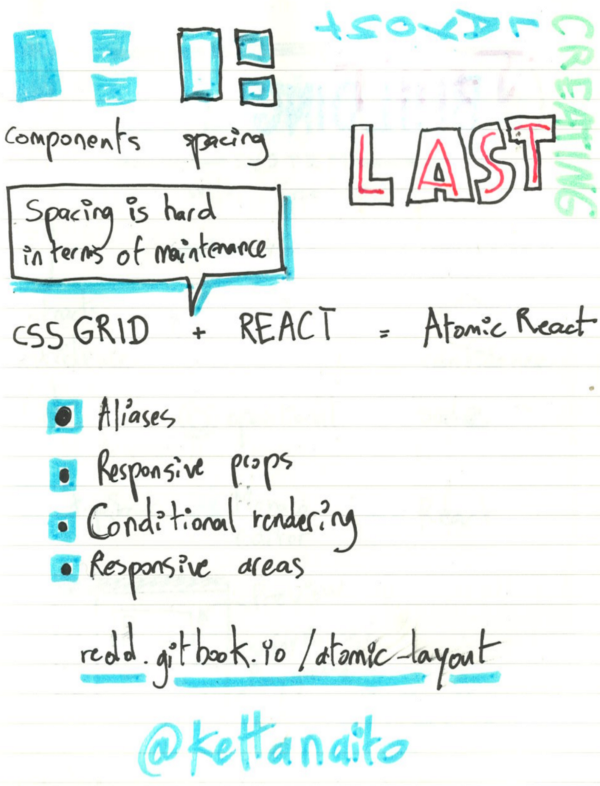 CREATING
LAYOUT
LAST
components spacing
Spacing is hard
in terms of maintenance
CSS GRID + REACT = Atomic React
Aliases
Responsive props
Conditional rendering
Responsive areas
redd.gitbook.io/atomic-layout
@kettanaito